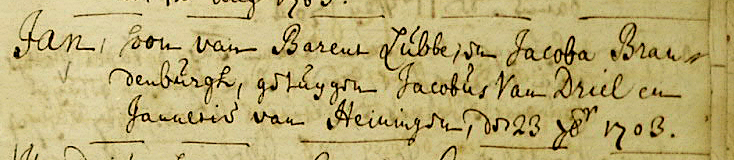 1703.
Jan, soon van Barent Lubbe, en Jacoba Bran-
denburgh, getuygen Jacobus Van Driel en
van Heiningen, den 23 1703.